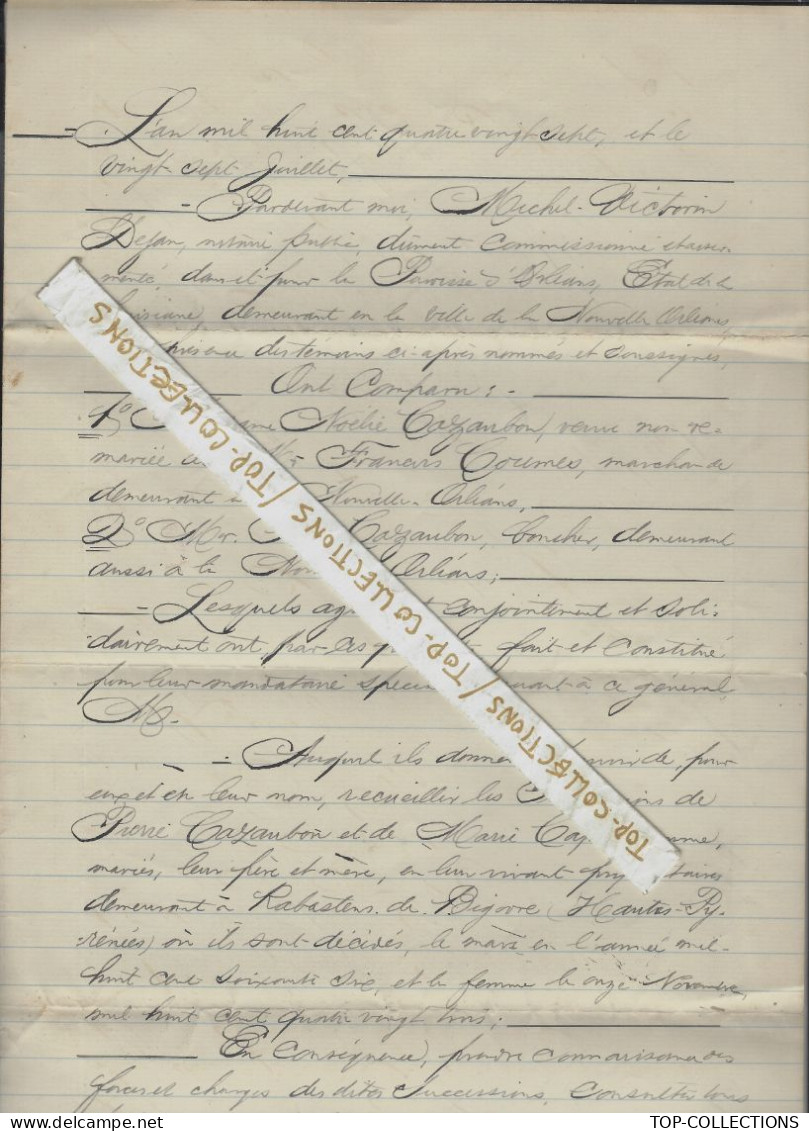 L'an mil huit cent quatre vingt sept, et le
vingt sept Juillet,
Pardevant moi, Michel-Victorin
Dejan, notaire public, dûment commissionné et asser-
menté, dans et pour la Paroisse d'Orléans, Etat de la
demeurant en la ville de la Nouvelle Orléans,
présence des témoins ci-après nommés et soussignés,
Ont Comparu:
1o Noélie Cazaubon, veuve non re-
mariée Francis Coumes, marchande
demeurant Nouvelle-Orléans,
2o Mr. Cazaubon, boucher, demeurant
aussi à la Orléans;
Lesquels conjointement et soli-
dairement ont, par ces fait et constitué
pour leur mandataire spécial à ce général
M.
Auquel ils donnent pouvoir de, pour
eux et en leur nom, recueillir les de
Pierre Cazaubon et de Marie
mariés, leur père et mère, en leur vivant
demeurant à Rabastens-de-Bigorre (Hautes-Py-
rénées) où ils sont décédés, le mari en l'année mil-
huit cent soixante six, et la femme le onze Novembre
mil huit cent quatre vingt trois;
En conséquence, prendre connaissance des
forces et charges des dites successions, Consulter tous
TOP-COLLECTIONS / TOP-COLLECTIONS / TOP-COLLECTIONS / TOP-COLLECTIONS / TOP-COLLECTIONS
TOP-COLLECTIONS